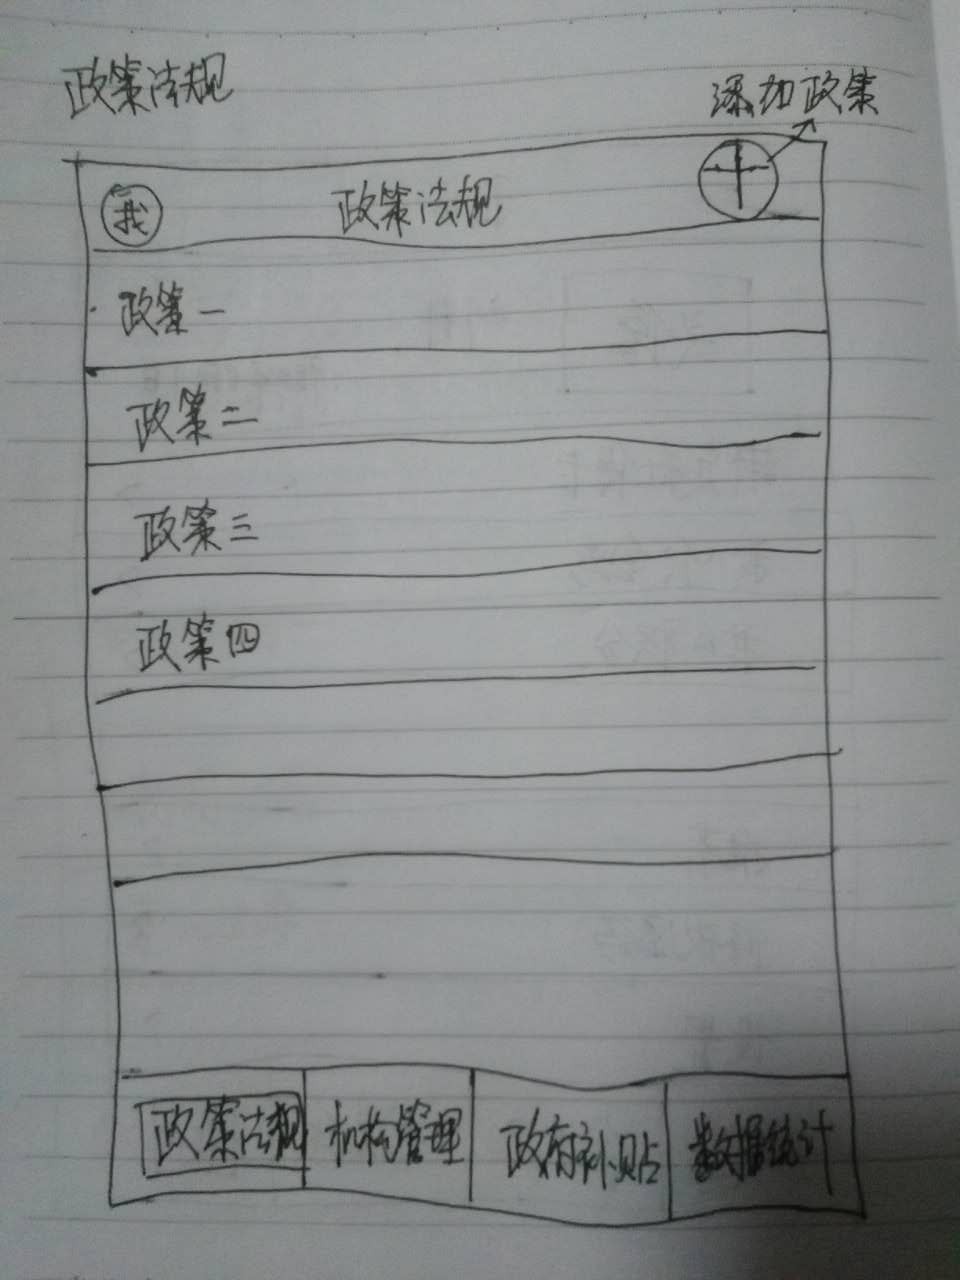 政策法规
添加政策
我 政策法规
政策一
政策二
政策三
政策四
政策法规 机构管理 政府补贴 数据统计